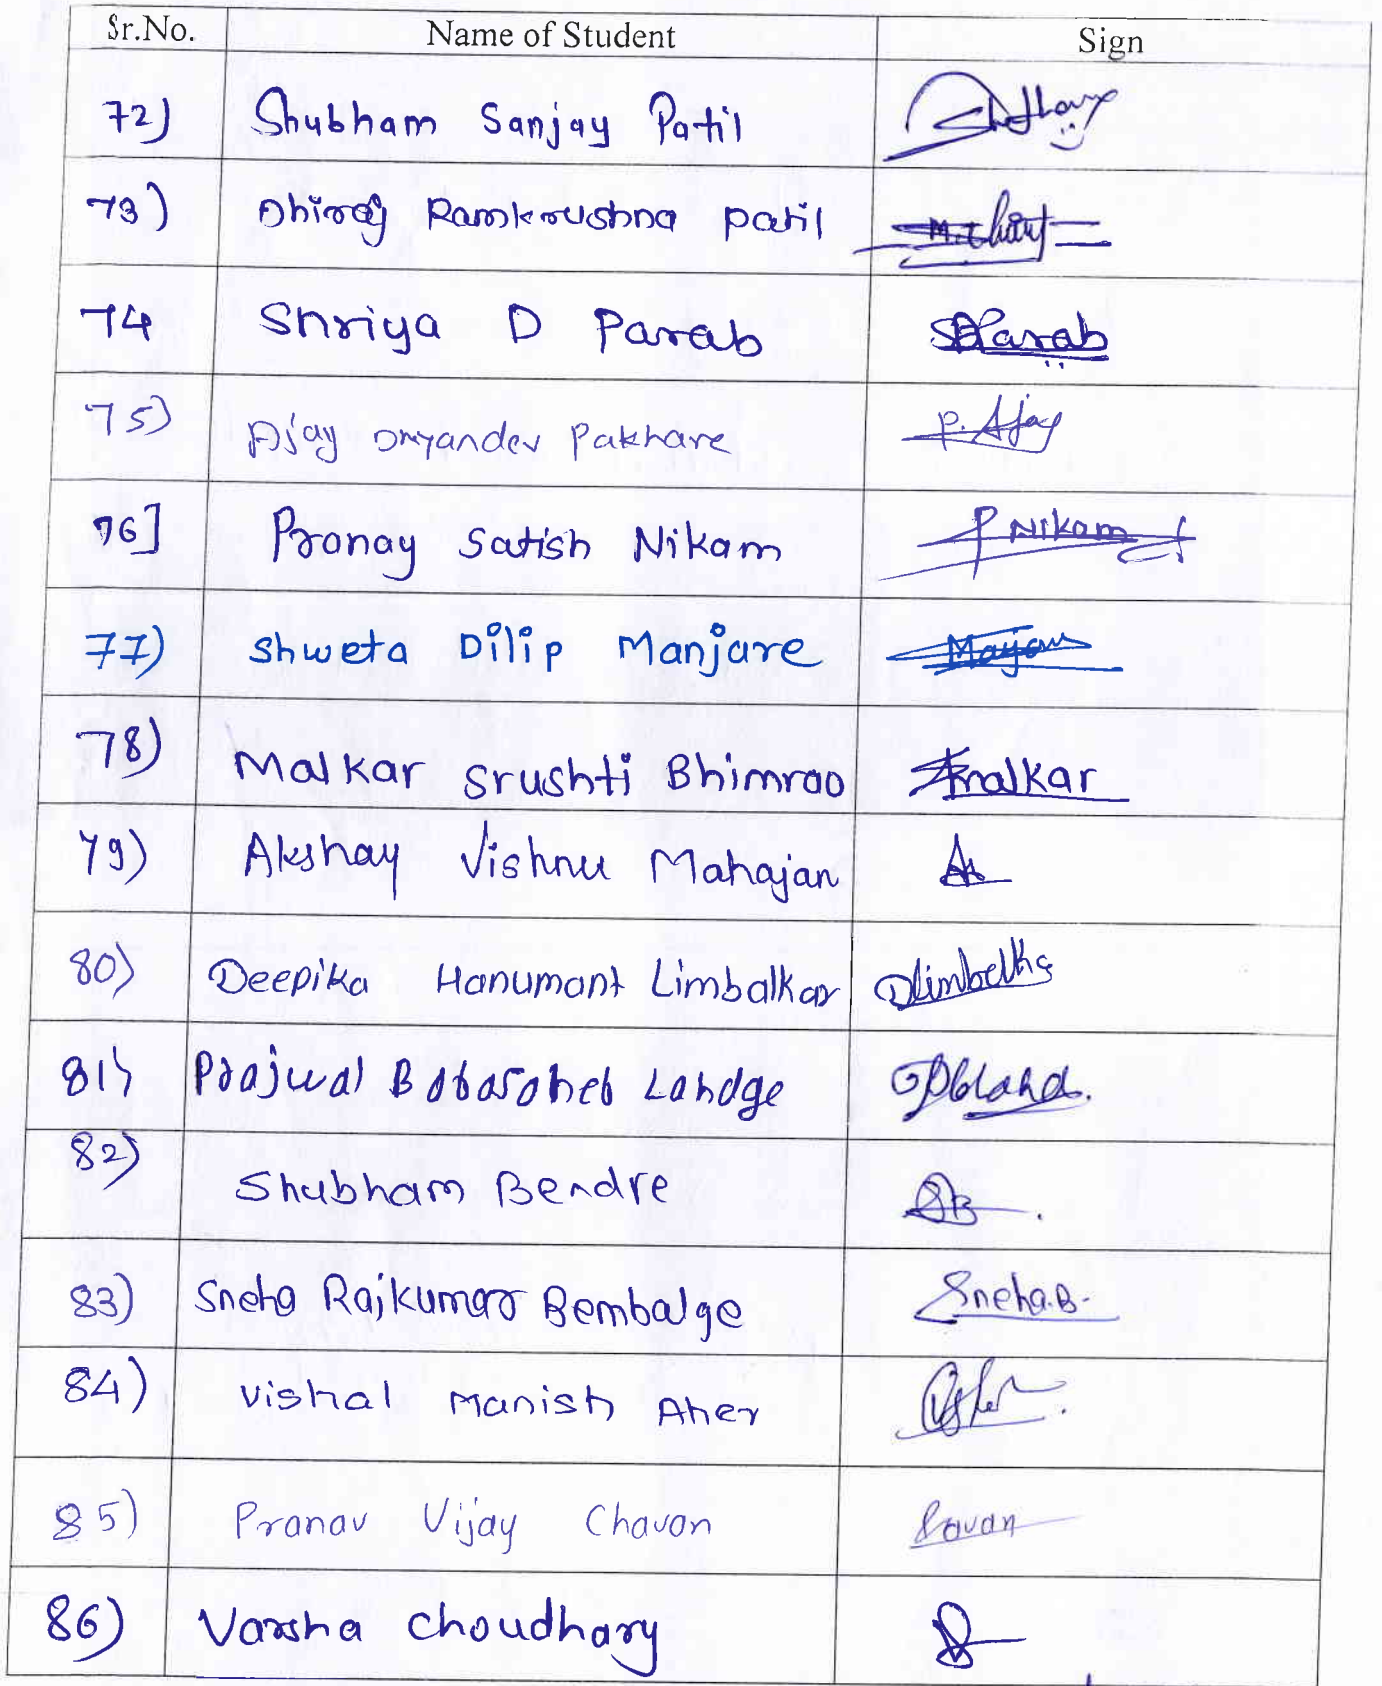 Sr.No. Name of Student Sign
72) Shubham Sanjay Patil
73) Dhiraj Ramkrushna Patil
74 Shriya D Parab SParab
75) Ajay Dnyandev Pakhare P. Ajay
76] Pranay Satish Nikam P Nikam
77) Shweta Dilip Manjare
78) Malkar Srushti Bhimrao Smalkar
79) Akshay Vishnu Mahajan
80) Deepika Hanumant Limbalkar
81) Prajwal Babasaheb Landge
82) Shubham Bendre SB.
83) Sneha Rajkumar Bembalge Sneha.B.
84) Vishal Manish Aher
85) Pranav Vijay Chavan
86) Varsha Choudhary